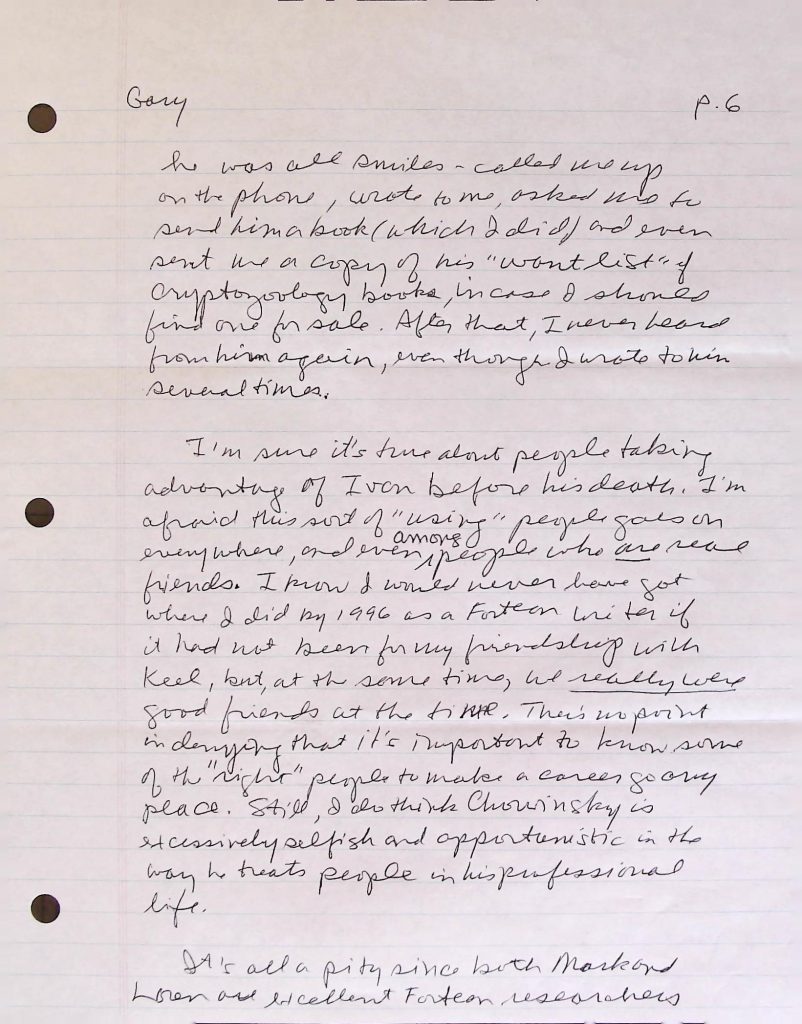 Gary p.6
he was all smiles - called me up
on the phone, wrote to me, asked me to
send him a book (which I did) and even
sent me a copy of his "want list" of
Cryptozoology books, in case I should
find one for sale. After that, I never heard
from him again, even though I wrote to him
several times.
I'm sure it's true about people taking
advantage of Ivan before his death. I'm
afraid this sort of "using" people goes on
everywhere, and even among people who are real
friends. I know I would never have got
where I did by 1996 as a Fortean writer if
it had not been for my friendship with
Keel, but, at the same time, we really were
good friends at the time. There's no point
in denying that it's important to know some
of the "right" people to make a career go any
place. Still, I do think Chorvinsky is
excessively selfish and opportunistic in the
way he treats people in his professional
life.
It's all a pity since both Mark and
Loren are excellent Fortean researchers